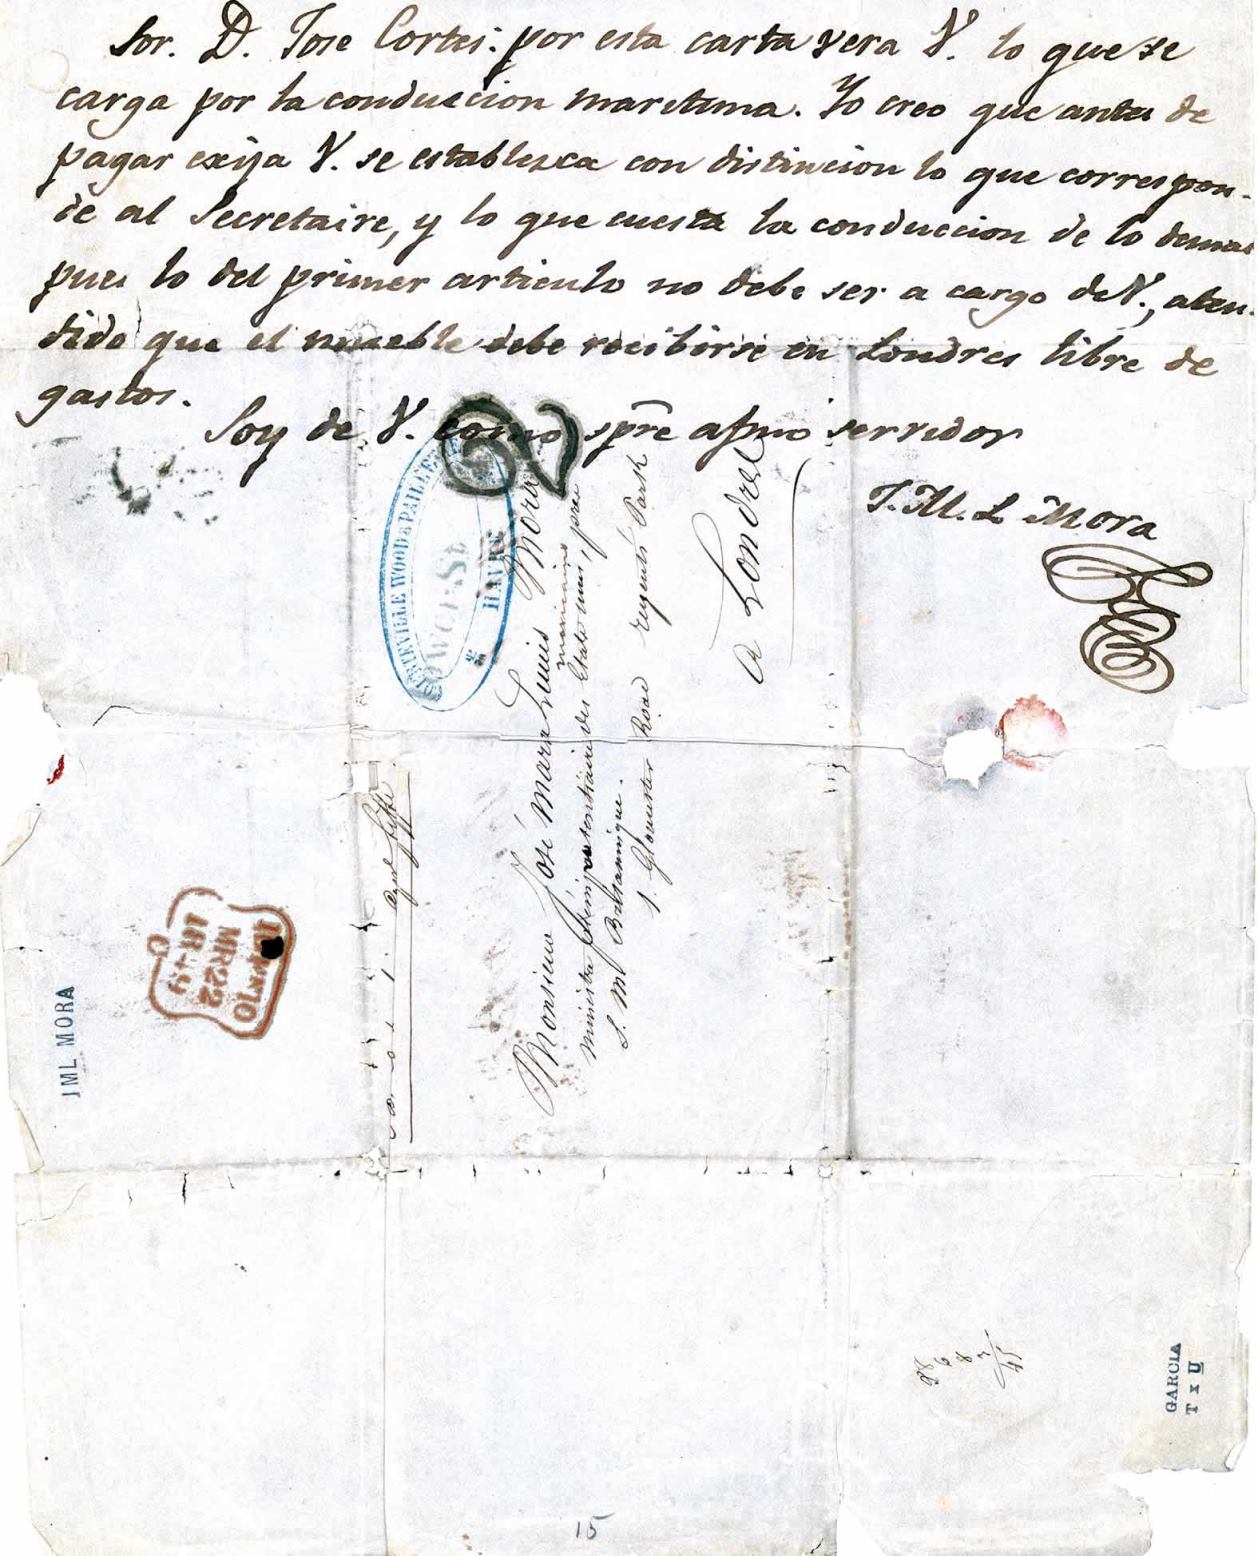 Sor. D. Jose Cortes: por esta carta vera V. lo que se
carga por la conduccion maretima. Yo creo que antes de
pagar exija V. se establesca con distincion lo que correspon-
de al Secretaire, y lo que cuesta la conduccion de lo demas
pues lo del primer articulo no debe ser a cargo de V., aten-
dido que el mueble debe recibirse en Londres libre de
gastos.
Soy de V. como spre afmo servidor
J. M. L Mora
2
WOOD &
HAVRE
Monsieur José Mara Luuis Mora
ministre plenipotentiaire des Etats unis, pres
mexicains
S. M. Britannique.
1. Gloucester Road regents Park
a Londres
MR 22
1849
JML MORA
GARCIA
T x U
15